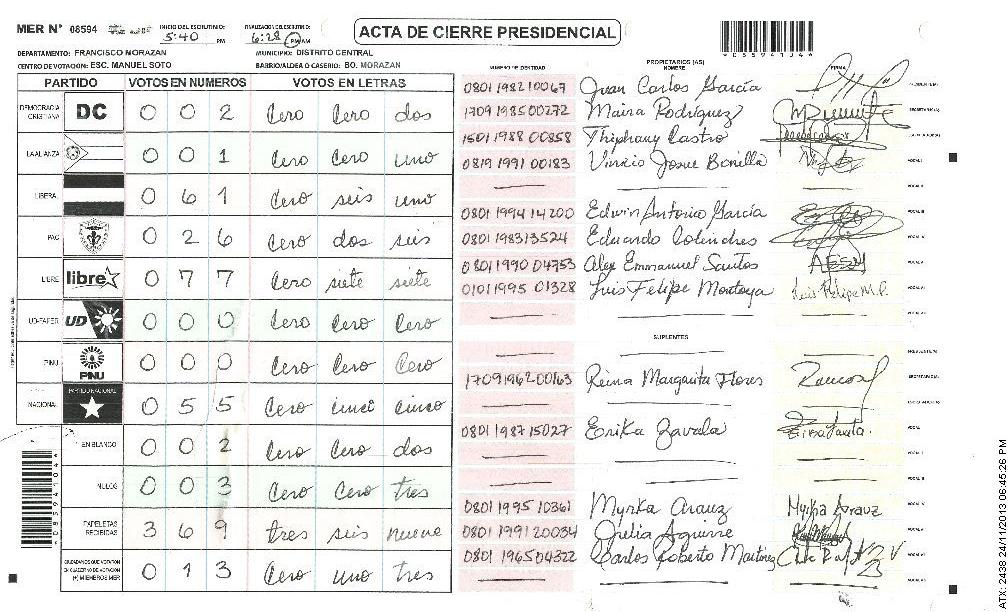 MER N° 08594 INICIO DEL ESCRUTINIO: 5:40 PM FINALIZACION DEL ESCRUTINIO: 6:28 PM AM
ACTA DE CIERRE PRESIDENCIAL
DEPARTAMENTO: FRANCISCO MORAZAN MUNICIPIO: DISTRITO CENTRAL
CENTRO DE VOTACION: ESC. MANUEL SOTO BARRIO/ALDEA O CASERIO: BO. MORAZAN
PARTIDO VOTOS EN NUMEROS VOTOS EN LETRAS
DEMOCRACIA CRISTIANA DC 0 0 2 Cero Cero dos
LA ALIANZA 0 0 1 Cero Cero uno
LIBERAL 0 6 1 Cero seis uno
PAC 0 2 6 Cero dos seis
LIBRE libre 0 7 7 Cero siete siete
UD-FAPER UD 0 0 0 Cero Cero Cero
PINU PINU 0 0 0 Cero Cero Cero
NACIONAL PARTIDO NACIONAL 0 5 5 Cero cinco cinco
EN BLANCO 0 0 2 Cero Cero dos
NULOS 0 0 3 Cero Cero tres
PAPELETAS RECIBIDAS 3 6 9 tres seis nueve
CIUDADANOS QUE VOTARON EN CUADERNO DE VOTACION (+) MIEMBROS MER 0 1 3 Cero uno tres
NUMERO DE IDENTIDAD PROPIETARIOS (AS) NOMBRE FIRMA
0801 1982 10067 Juan Carlos García
1709 1985 00272 Maira Rodríguez
1501 1988 00858 Thiphany Castro
0819 1991 00183 Vinicio Josue Bonilla VOCAL I
VOCAL II
0801 1994 14200 Edwin Antonio García VOCAL III
0801 1983 13524 Eduardo Colindres
0801 1990 04753 Alex Emmanuel Santos
0101 1995 01328 Luis Felipe Montoya Luis Felipe M.
SUPLENTES
1709 1962 00163 Reina Margarita Flores
0801 1987 15027 Erika Zavala
0801 1995 10361 Myrka Arauz Myrka Arauz
0801 1991 20034 Julia Aguirre
0801 1965 04322 Carlos Roberto Martinez
ATX: 2438 24/11/2013 06:45:26 PM